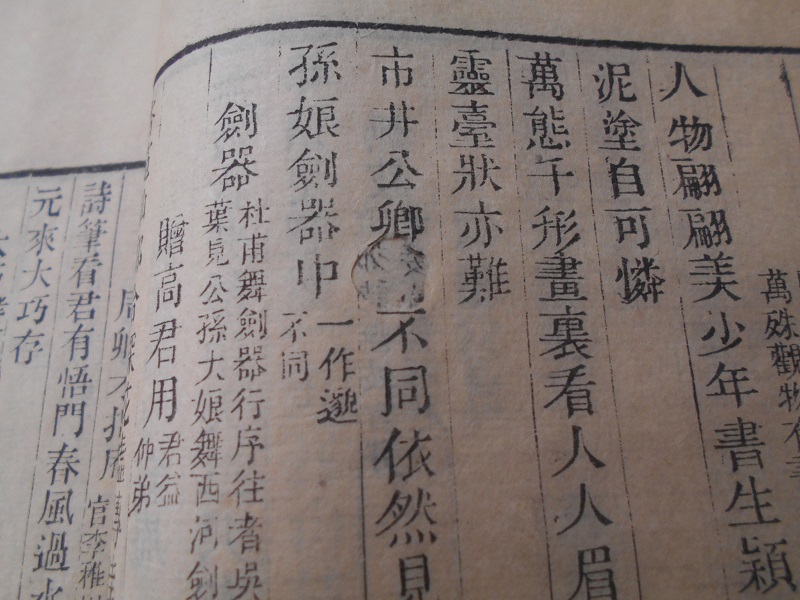 萬殊觀物
人物翩翩美少年書生穎
泥塗自可憐
萬態千形畫裏看人人眉
靈臺狀亦難
市井公卿
不同依然見
孫娘劍器中
一作邈
不同
劍器
杜甫舞劍器行序往者吳
葉見公孫大娘舞西河劍
贈高君用
君益
仲弟
官李稚
詩筆看君有悟門春風過水
元來大巧存